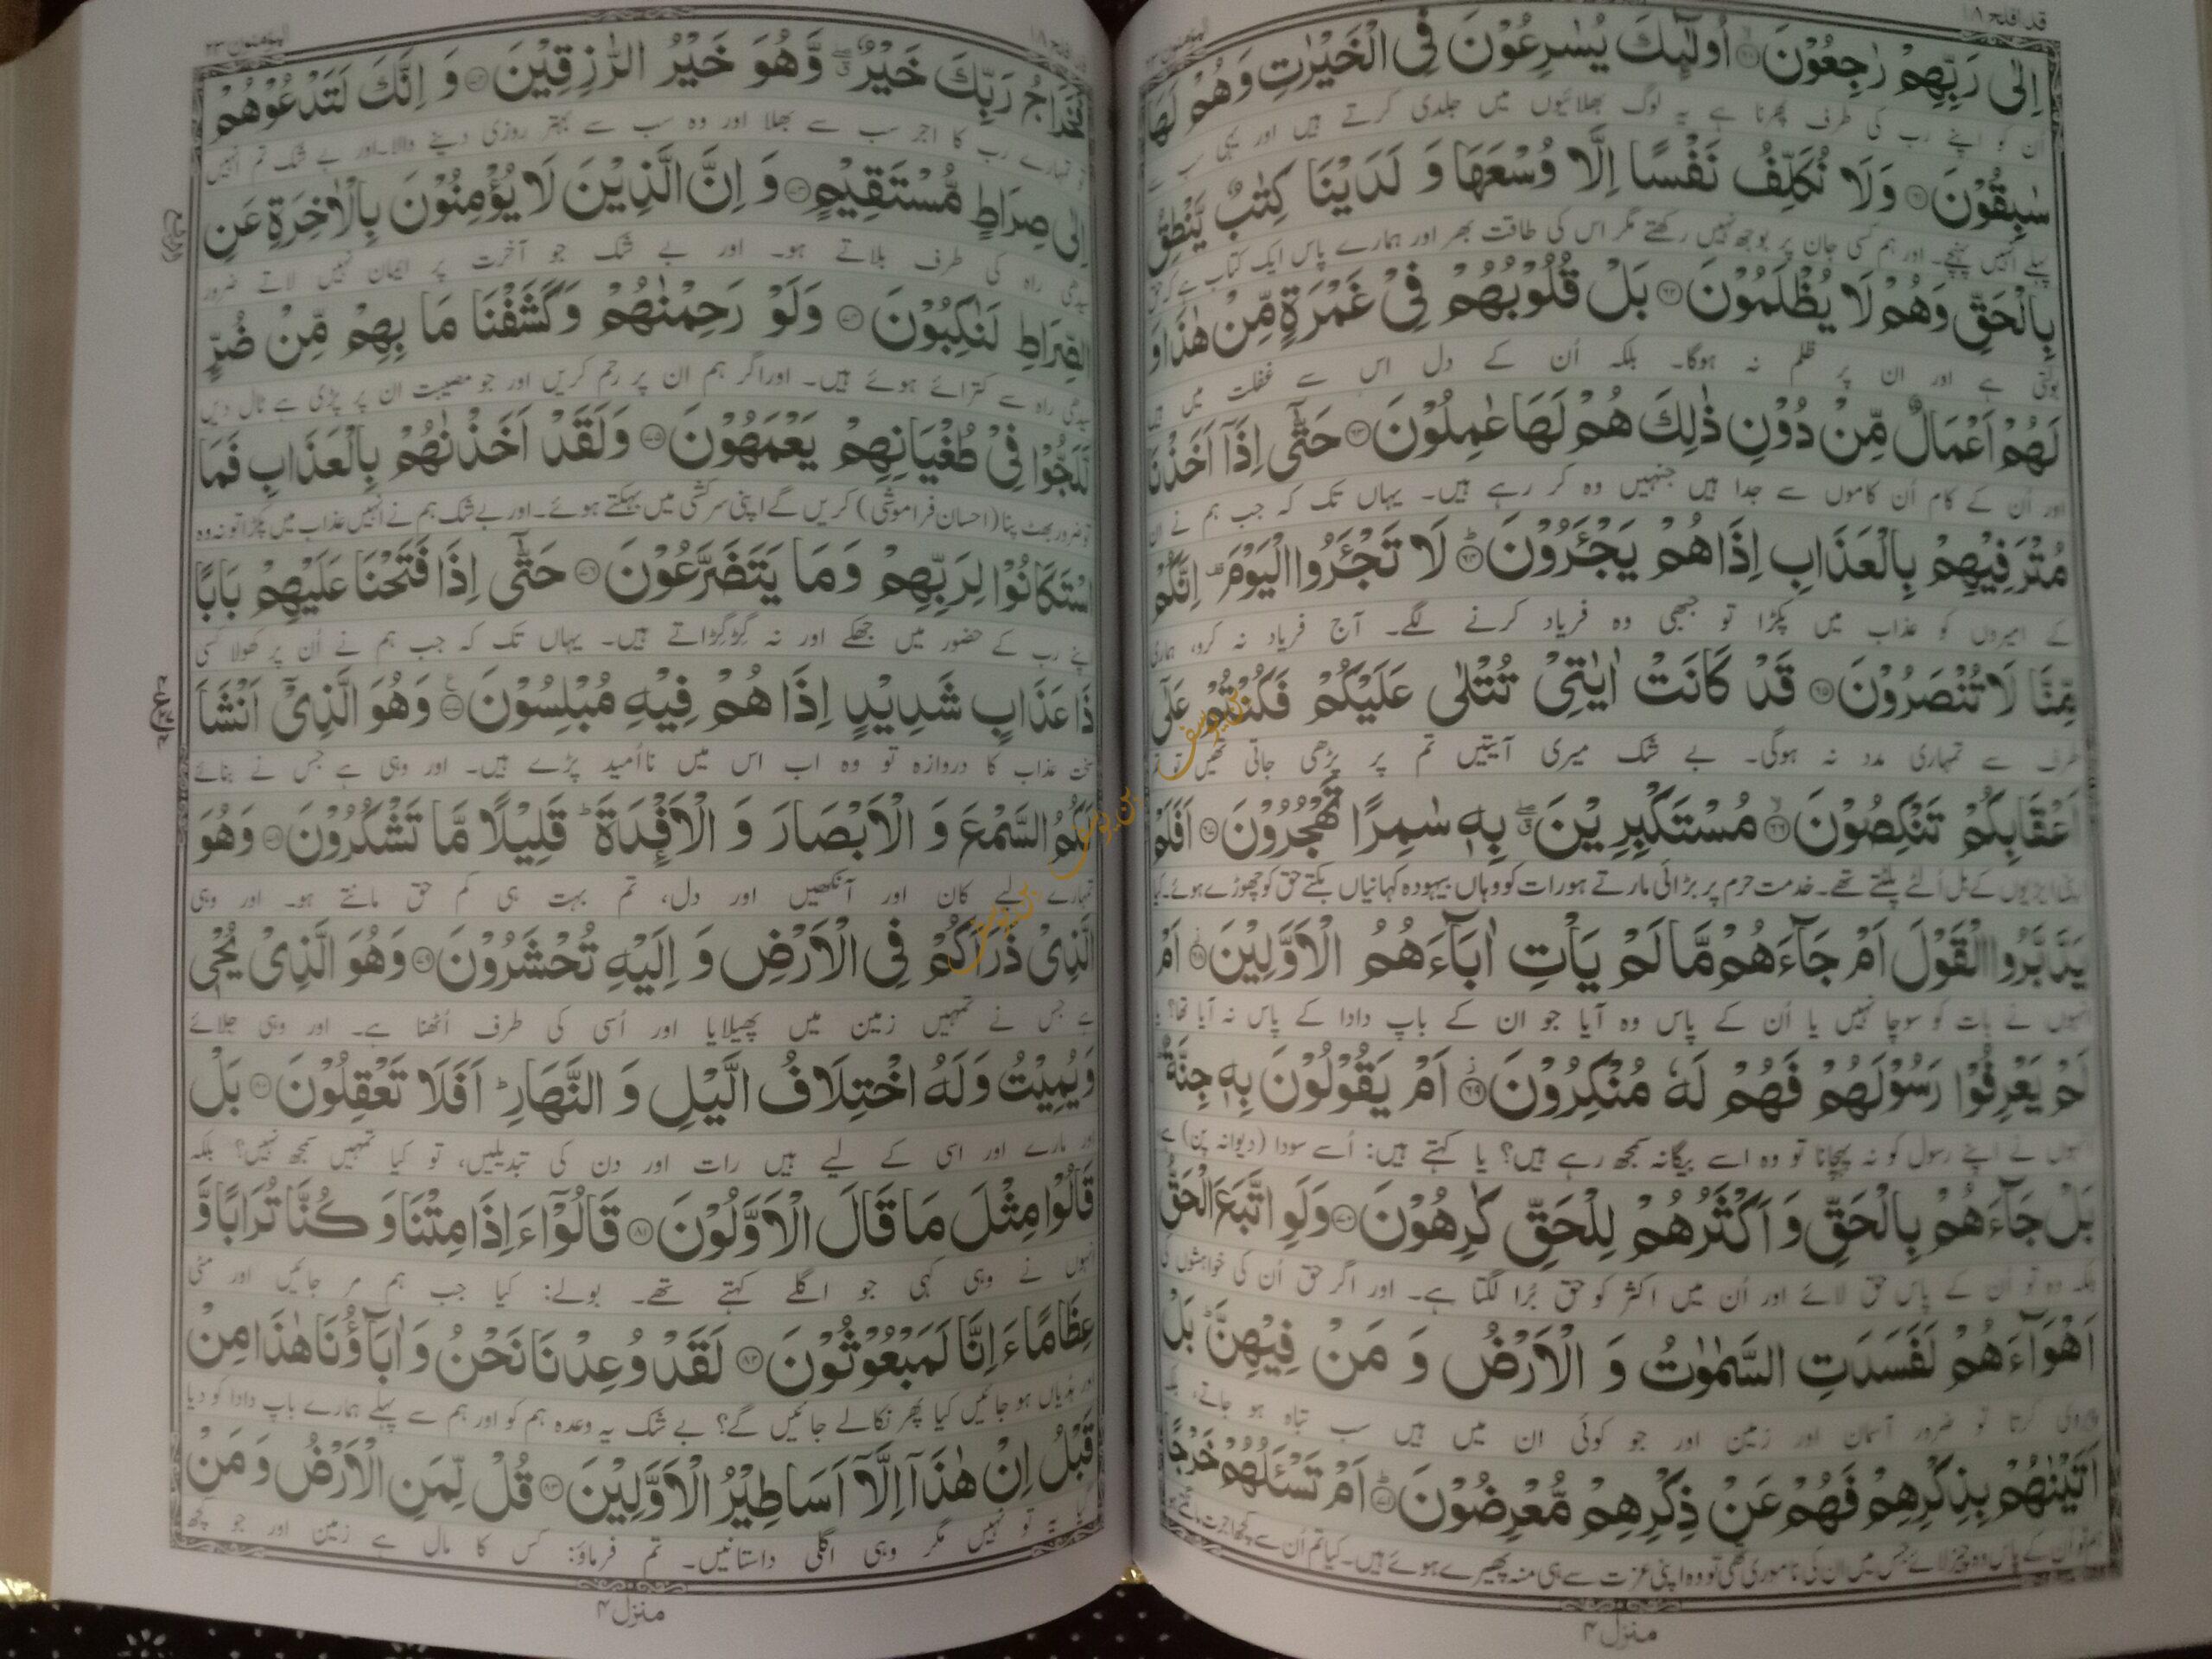 قد افلح ۱۸
اِلٰى رَبِّهِمْ رٰجِعُوْنَ ۙ﴿۶۰﴾ اُولٰٓىِٕكَ یُسٰرِعُوْنَ فِی الْخَیْرٰتِ وَهُمْ لَهَا
اُن کو اپنے رب کی طرف پھرنا ہے یہ لوگ بھلائیوں میں جلدی کرتے ہیں اور یہی سب سے
سٰبِقُوْنَ ﴿۶۱﴾ وَلَا نُكَلِّفُ نَفْسًا اِلَّا وُسْعَهَا وَ لَدَیْنَا كِتٰبٌ یَّنْطِقُ
پہلے انہیں پہنچے۔ اور ہم کسی جان پر بوجھ نہیں رکھتے مگر اس کی طاقت بھر اور ہمارے پاس ایک کتاب ہے کہ حق
بِالْحَقِّ وَهُمْ لَا یُظْلَمُوْنَ ﴿۶۲﴾ بَلْ قُلُوْبُهُمْ فِیْ غَمْرَةٍ مِّنْ هٰذَا وَ
بولتی ہے اور ان پر ظلم نہ ہوگا۔ بلکہ اُن کے دل اس سے غفلت میں ہیں
لَهُمْ اَعْمَالٌ مِّنْ دُوْنِ ذٰلِكَ هُمْ لَهَا عٰمِلُوْنَ ﴿۶۳﴾ حَتّٰۤى اِذَاۤ اَخَذْنَا
اور اُن کے کام اُن کاموں سے جدا ہیں جنہیں وہ کر رہے ہیں۔ یہاں تک کہ جب ہم نے ان
مُتْرَفِیْهِمْ بِالْعَذَابِ اِذَا هُمْ یَجْـَٔرُوْنَ ؕ﴿۶۴﴾ لَا تَجْـَٔرُوا الْیَوْمَ ۫ اِنَّكُمْ
کے امیروں کو عذاب میں پکڑا تو جبھی وہ فریاد کرنے لگے۔ آج فریاد نہ کرو، ہماری
مِّنَّا لَا تُنْصَرُوْنَ ﴿۶۵﴾ قَدْ كَانَتْ اٰیٰتِیْ تُتْلٰى عَلَیْكُمْ فَكُنْتُمْ عَلٰۤى
طرف سے تمہاری مدد نہ ہوگی۔ بے شک میری آیتیں تم پر پڑھی جاتی تھیں تو تم
اَعْقَابِكُمْ تَنْكِصُوْنَ ۙ﴿۶۶﴾ مُسْتَكْبِرِیْنَ ۖۗ بِهٖ سٰمِرًا تَهْجُرُوْنَ ﴿۶۷﴾ اَفَلَمْ
اپنی ایڑیوں کے بل اُلٹے پلٹتے تھے۔ خدمت حرم پر بڑائی مارتے ہو رات کو وہاں بیہودہ کہانیاں بکتے حق کو چھوڑے ہوئے۔ کیا
یَدَّبَّرُوا الْقَوْلَ اَمْ جَآءَهُمْ مَّا لَمْ یَاْتِ اٰبَآءَهُمُ الْاَوَّلِیْنَ ۫﴿۶۸﴾ اَمْ
انہوں نے بات کو سوچا نہیں یا اُن کے پاس وہ آیا جو ان کے باپ دادا کے پاس نہ آیا تھا؟ یا
لَمْ یَعْرِفُوْا رَسُوْلَهُمْ فَهُمْ لَهٗ مُنْكِرُوْنَ ۫﴿۶۹﴾ اَمْ یَقُوْلُوْنَ بِهٖ جِنَّةٌ ؕ
انہوں نے اپنے رسول کو نہ پہچانا تو وہ اسے بیگانہ سمجھ رہے ہیں؟ یا کہتے ہیں: اُسے سودا (دیوانہ پن) ہے
بَلْ جَآءَهُمْ بِالْحَقِّ وَ اَكْثَرُهُمْ لِلْحَقِّ كٰرِهُوْنَ ﴿۷۰﴾ وَلَوِ اتَّبَعَ الْحَقُّ
بلکہ وہ تو اُن کے پاس حق لائے اور اُن میں اکثر کو حق بُرا لگتا ہے۔ اور اگر حق اُن کی خواہشوں کی
اَهْوَآءَهُمْ لَفَسَدَتِ السَّمٰوٰتُ وَ الْاَرْضُ وَ مَنْ فِیْهِنَّ ؕ بَلْ
پیروی کرتا تو ضرور آسمان اور زمین اور جو کوئی ان میں ہیں سب تباہ ہو جاتے،
اَتَیْنٰهُمْ بِذِكْرِهِمْ فَهُمْ عَنْ ذِكْرِهِمْ مُّعْرِضُوْنَ ؕ﴿۷۱﴾ اَمْ تَسْـَٔلُهُمْ خَرْجًا
ہم تو اُن کے پاس وہ چیز لائے جس میں ان کی ناموری تھی تو وہ اپنی عزت سے ہی منہ پھیرے ہوئے ہیں۔ کیا تم اُن سے کچھ اجرت مانگتے
منزل ۴
المؤمنون ۲۳
فَخَرَاجُ رَبِّكَ خَیْرٌ ۖۗ وَّهُوَ خَیْرُ الرّٰزِقِیْنَ ﴿۷۲﴾ وَ اِنَّكَ لَتَدْعُوْهُمْ
تو تمہارے رب کا اجر سب سے بھلا اور وہ سب سے بہتر روزی دینے والا۔ اور بے شک تم انہیں
اِلٰى صِرَاطٍ مُّسْتَقِیْمٍ ﴿۷۳﴾ وَ اِنَّ الَّذِیْنَ لَا یُؤْمِنُوْنَ بِالْاٰخِرَةِ عَنِ
سیدھی راہ کی طرف بلاتے ہو۔ اور بے شک جو آخرت پر ایمان نہیں لاتے ضرور
الصِّرَاطِ لَنٰكِبُوْنَ ﴿۷۴﴾ وَلَوْ رَحِمْنٰهُمْ وَ كَشَفْنَا مَا بِهِمْ مِّنْ ضُرٍّ
سیدھی راہ سے کترائے ہوئے ہیں۔ اور اگر ہم ان پر رحم کریں اور جو مصیبت ان پر پڑی ہے ٹال دیں
لَّلَجُّوْا فِیْ طُغْیَانِهِمْ یَعْمَهُوْنَ ﴿۷۵﴾ وَلَقَدْ اَخَذْنٰهُمْ بِالْعَذَابِ فَمَا
تو ضرور بھٹ پنا (احسان فراموشی) کریں گے اپنی سرکشی میں بہکتے ہوئے۔ اور بے شک ہم نے انہیں عذاب میں پکڑا تو نہ وہ
اسْتَكَانُوْا لِرَبِّهِمْ وَمَا یَتَضَرَّعُوْنَ ﴿۷۶﴾ حَتّٰۤى اِذَا فَتَحْنَا عَلَیْهِمْ بَابًا
اپنے رب کے حضور میں جھکے اور نہ گڑگڑاتے ہیں۔ یہاں تک کہ جب ہم نے اُن پر کھولا کسی
ذَا عَذَابٍ شَدِیْدٍ اِذَا هُمْ فِیْهِ مُبْلِسُوْنَ ﴿۷۷﴾ وَهُوَ الَّذِیْۤ اَنْشَاَ
سخت عذاب کا دروازہ تو وہ اب اس میں ناامید پڑے ہیں۔ اور وہی ہے جس نے بنائے
لَكُمُ السَّمْعَ وَ الْاَبْصَارَ وَ الْاَفْـِٕدَةَ ؕ قَلِیْلًا مَّا تَشْكُرُوْنَ ﴿۷۸﴾ وَهُوَ
تمہارے لیے کان اور آنکھیں اور دل، تم بہت ہی کم حق مانتے ہو۔ اور وہی
الَّذِیْ ذَرَاَكُمْ فِی الْاَرْضِ وَ اِلَیْهِ تُحْشَرُوْنَ ﴿۷۹﴾ وَهُوَ الَّذِیْ یُحْیٖ
ہے جس نے تمہیں زمین میں پھیلایا اور اُسی کی طرف اُٹھنا ہے۔ اور وہی جلائے
وَیُمِیْتُ وَلَهُ اخْتِلَافُ الَّیْلِ وَ النَّهَارِ ؕ اَفَلَا تَعْقِلُوْنَ ﴿۸۰﴾ بَلْ
اور مارے اور اسی کے لیے ہیں رات اور دن کی تبدیلیں، تو کیا تمہیں سمجھ نہیں؟ بلکہ
قَالُوْا مِثْلَ مَا قَالَ الْاَوَّلُوْنَ ﴿۸۱﴾ قَالُوْۤا ءَاِذَا مِتْنَا وَ كُنَّا تُرَابًا وَّ
انہوں نے وہی کہی جو اگلے کہتے تھے۔ بولے: کیا جب ہم مر جائیں اور مٹی
عِظَامًا ءَاِنَّا لَمَبْعُوْثُوْنَ ﴿۸۲﴾ لَقَدْ وُعِدْنَا نَحْنُ وَ اٰبَآؤُنَا هٰذَا مِنْ
اور ہڈیاں ہو جائیں کیا پھر نکالے جائیں گے؟ بے شک یہ وعدہ ہم کو اور ہم سے پہلے ہمارے باپ دادا کو دیا
قَبْلُ اِنْ هٰذَاۤ اِلَّاۤ اَسَاطِیْرُ الْاَوَّلِیْنَ ﴿۸۳﴾ قُلْ لِّمَنِ الْاَرْضُ وَ مَنْ
یہ تو نہیں مگر وہی اگلی داستانیں۔ تم فرماؤ: کس کا مال ہے زمین اور جو کچھ
منزل ۴